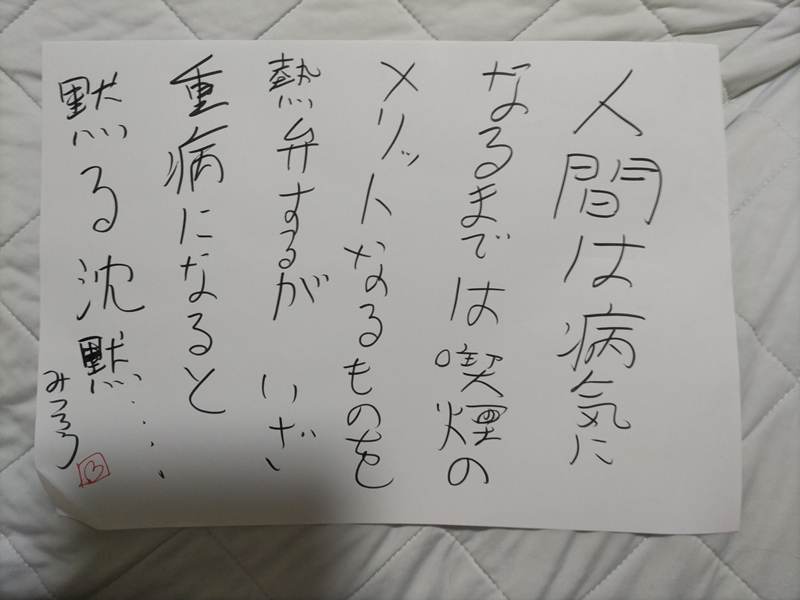 人間は病気に
なるまでは喫煙の
メリットなるものを
熱弁するが いざ
重病になると
黙る沈黙・・・・、
みつろう